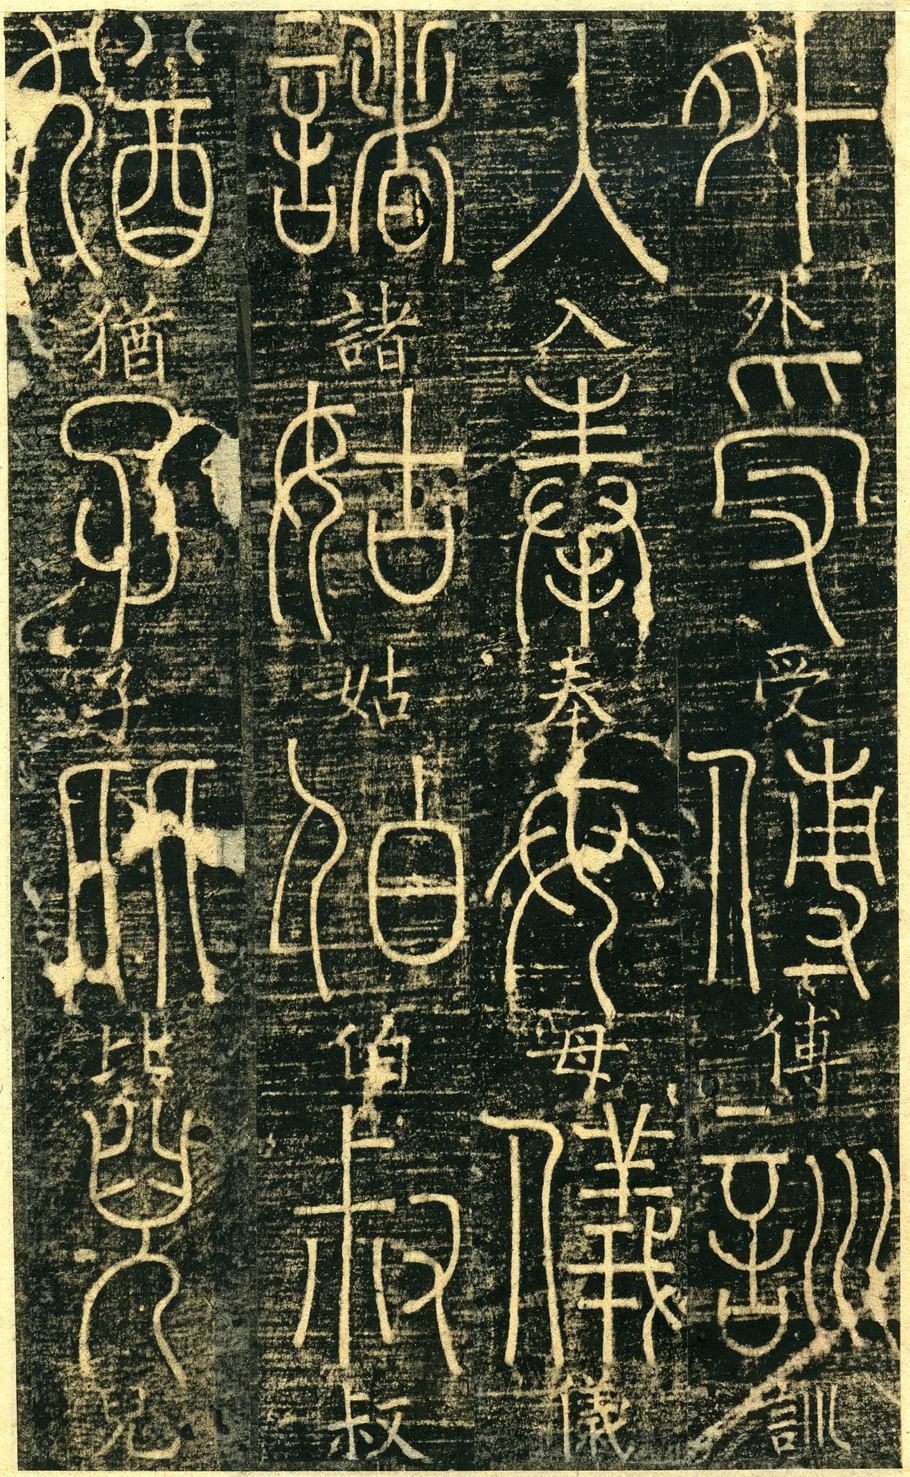 外外受受傅傅訓訓
入入奉奉母母儀儀
諸諸姑姑伯伯叔叔
猶猶子子比比兒兒